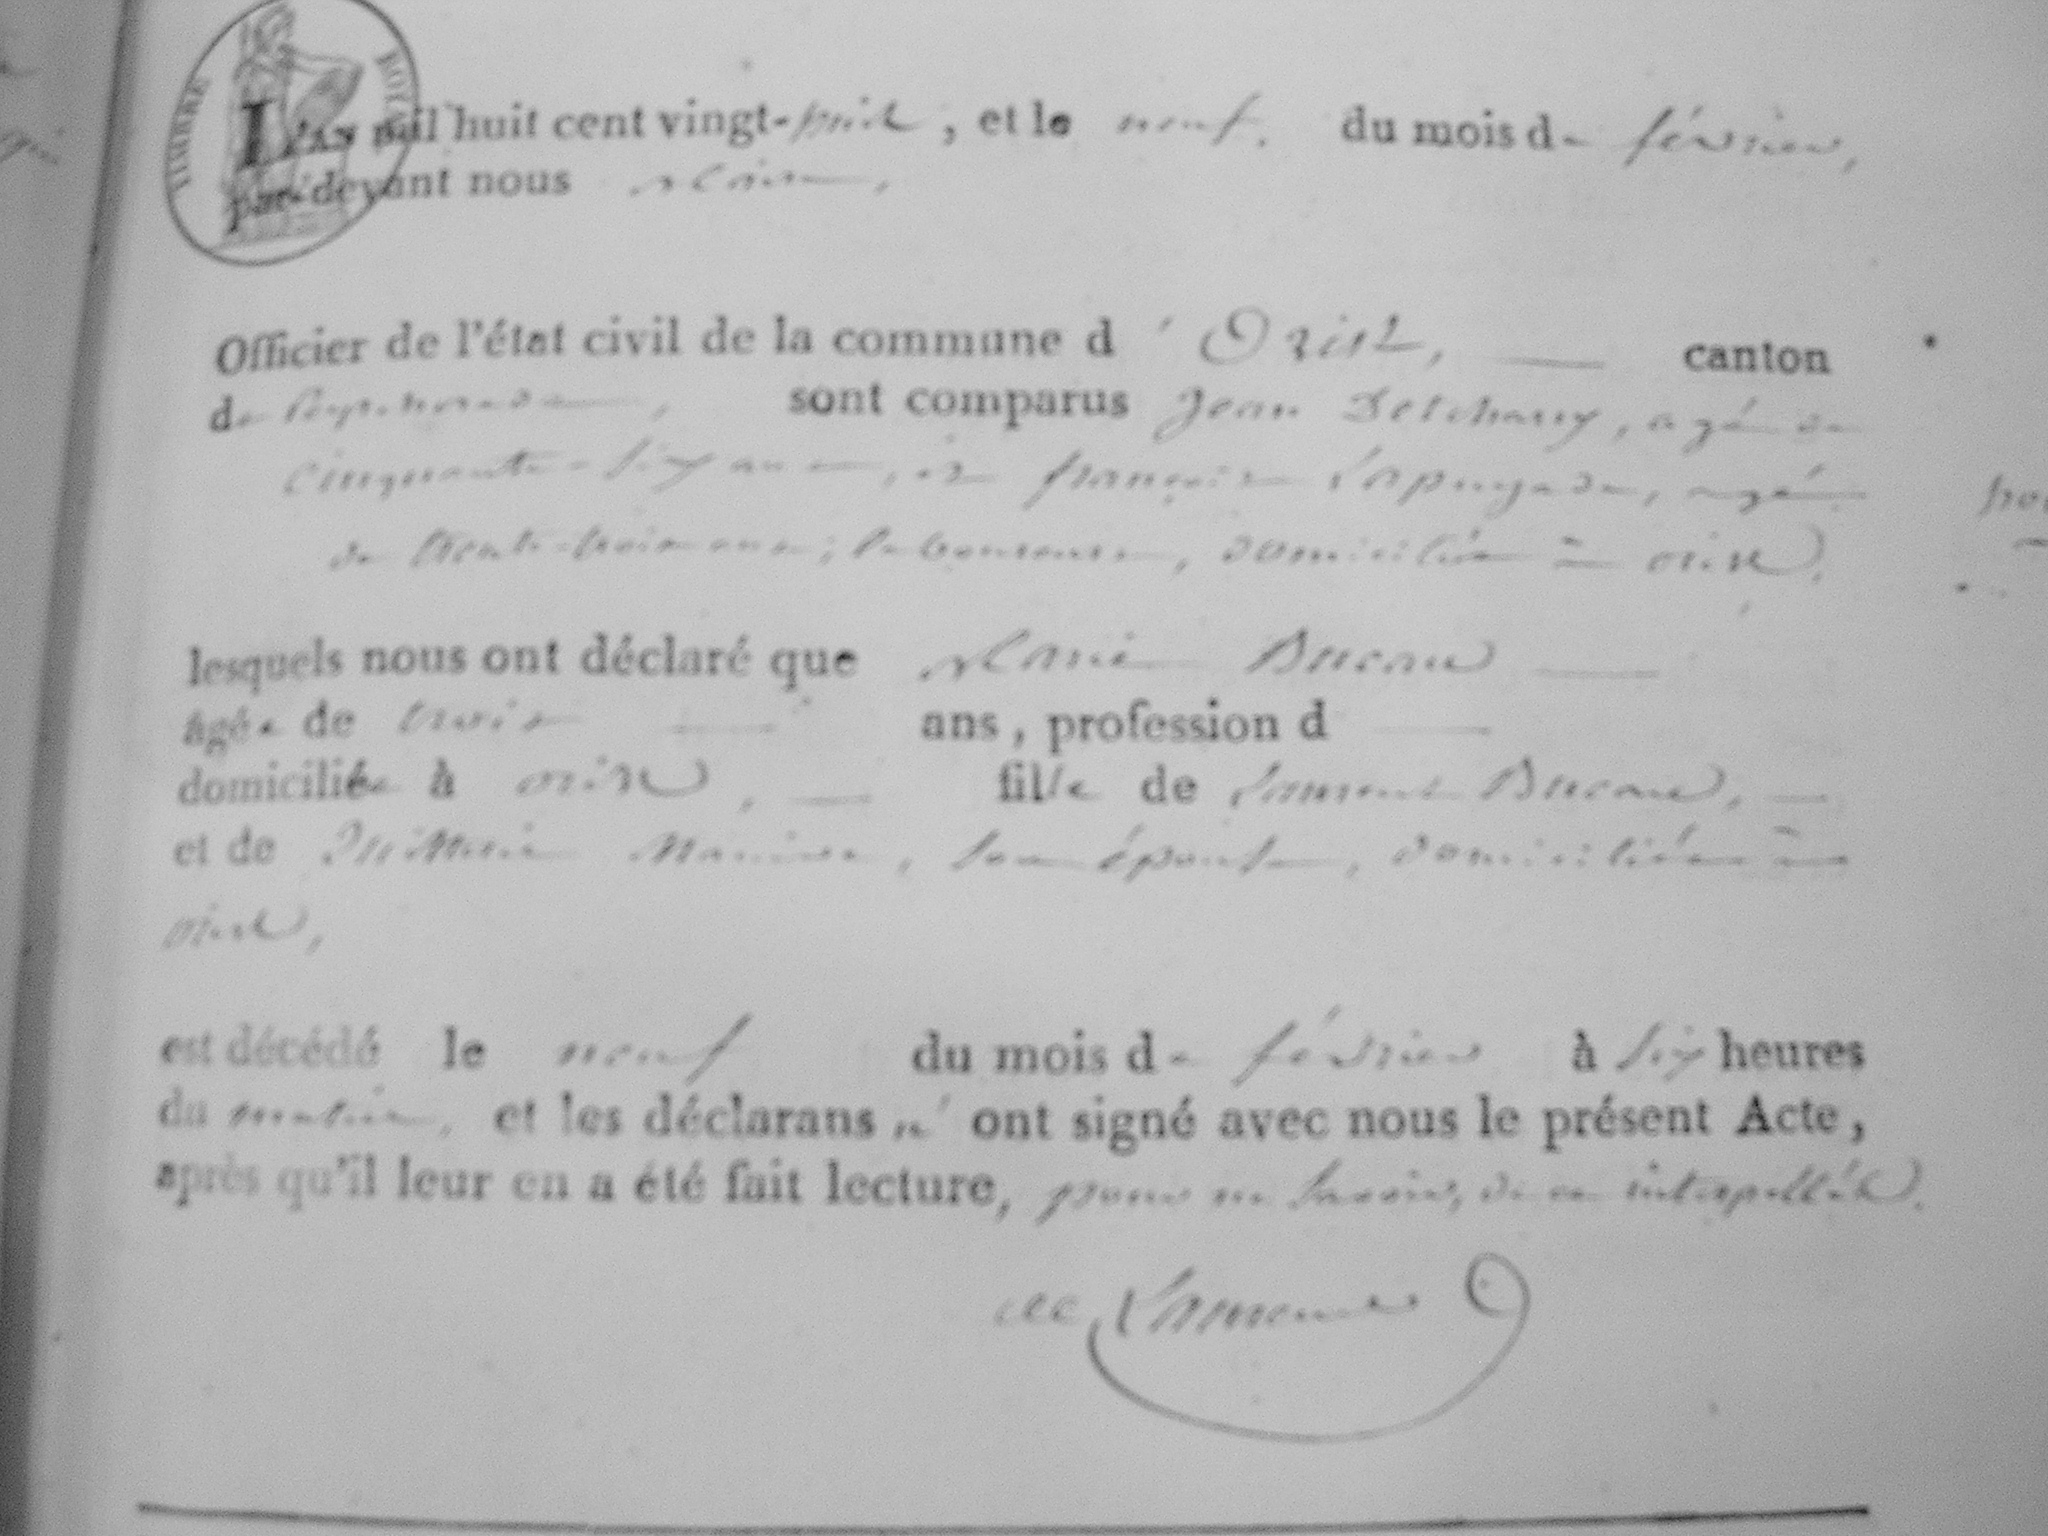 TIMBRE ROYAL
L'AN mil huit cent vingt-huit, et le neuf. du mois de février,
par-devant nous Maire,
Officier de l'état civil de la commune d'Orist, canton
de Peyrehorade, sont comparus Jean Detcharry, agé de
cinquante-six ans, et françois Lapuyade, agé
de trente-trois ans; laboureurs, domiciliés à orist.
lesquels nous ont déclaré que Marie Ducau
âgée de trois ans, profession d
domiciliée à orist, fille de Laurent Ducau,
et de Marie, son épouse, domiciliés à
orist,
est décédé le neuf du mois de février à six heures
du matin, et les déclarans n'ont signé avec nous le présent Acte,
après qu'il leur en a été fait lecture, pour ne savoir, de ce interpellés.